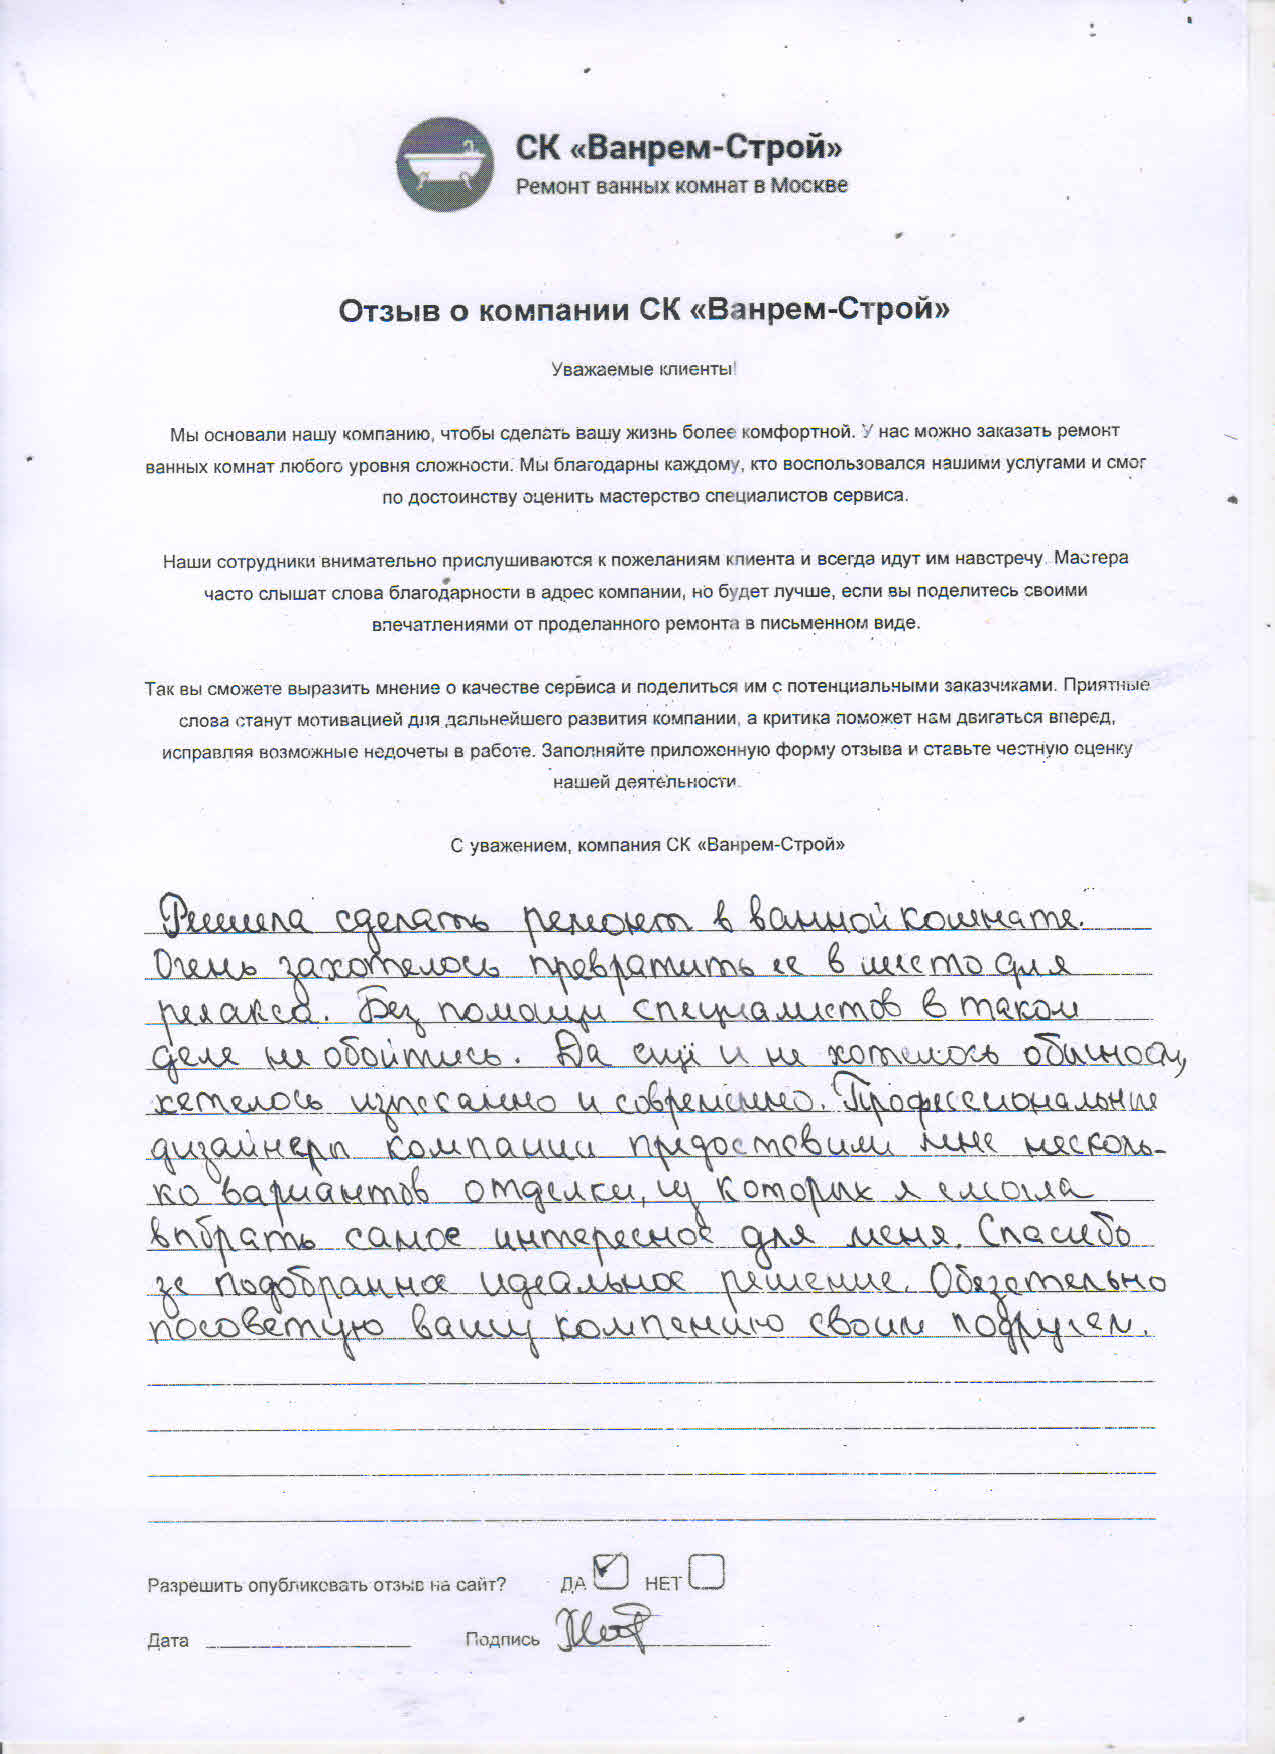 СК «Ванрем-Строй»
Ремонт ванных комнат в Москве
Отзыв о компании СК «Ванрем-Строй»
Уважаемые клиенты!
Мы основали нашу компанию, чтобы сделать вашу жизнь более комфортной. У нас можно заказать ремонт
ванных комнат любого уровня сложности. Мы благодарны каждому, кто воспользовался нашими услугами и смог
по достоинству оценить мастерство специалистов сервиса.
Наши сотрудники внимательно прислушиваются к пожеланиям клиента и всегда идут им навстречу. Мастера
часто слышат слова благодарности в адрес компании, но будет лучше, если вы поделитесь своими
впечатлениями от проделанного ремонта в письменном виде.
Так вы сможете выразить мнение о качестве сервиса и поделиться им с потенциальными заказчиками. Приятные
слова станут мотивацией для дальнейшего развития компании, а критика поможет нам двигаться вперед,
исправляя возможные недочеты в работе. Заполняйте приложенную форму отзыва и ставьте честную оценку
нашей деятельности.
С уважением, компания СК «Ванрем-Строй»
Решила сделать ремонт в ванной комнате.
Очень захотелось превратить ее в место для
релакса. Без помощи специалистов в таком
деле не обойтись. Да ещё и не хотелось обычности,
хотелось изысканно и современно. Профессиональные
дизайнеры компании предоставили мне несколь-
ко вариантов отделки, из которых я смогла
выбрать самое интересное для меня. Спасибо
за подобранное идеальное решение. Обязательно
посоветую вашу компанию своим подругам.
Разрешить опубликовать отзыв на сайт? ДА НЕТ
Дата Подпись